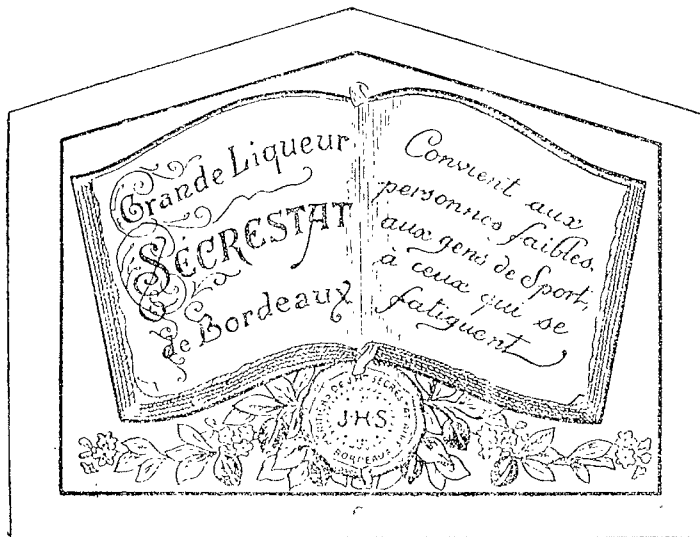 Grande Liqueur
SÉCRESTAT
de Bordeaux
Convient aux
personnes faibles,
aux gens de Sport,
à ceux qui se
fatiguent
J.H.S.
BORDEAUX